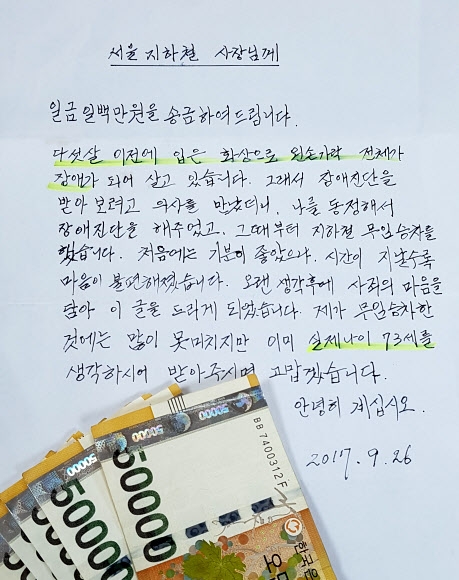 서울 지하철 사장님께
일금 일백만원을 송금하여 드립니다.
다섯살 이전에 입은 화상으로 왼손가락 전체가
장애가 되어 살고 있습니다. 그래서 장애진단을
받아 보려고 의사를 만났더니, 나를 동정해서
장애진단을 해주었고, 그때부터 지하철 무임승차를
했습니다. 처음에는 기분이 좋았으나, 시간이 지날수록
마음이 불편해졌습니다. 오랜 생각후에 사죄의 마음을
담아 이 글을 드리게 되었습니다. 제가 무임승차한
것에는 많이 못미치지만 이미 실제나이 73세를
생각하시어 받아주시면 고맙겠습니다.
안녕히 계십시오.
2017. 9. 26
50000
50000
50000
50000
BB 7400312 F
50000
50000
50000
50000
한국은
오